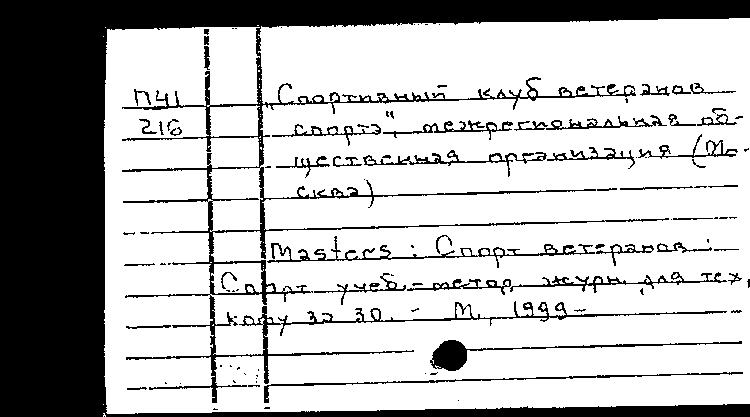 П41
216
„Спортивный клуб ветеранов
спорта", межрегиональная об-
щественная организация (Мо-
сква)
Masters : Спорт ветеранов :
Спорт. учеб.-метод. журн. для тех,
кому за 30. – М., 1999–